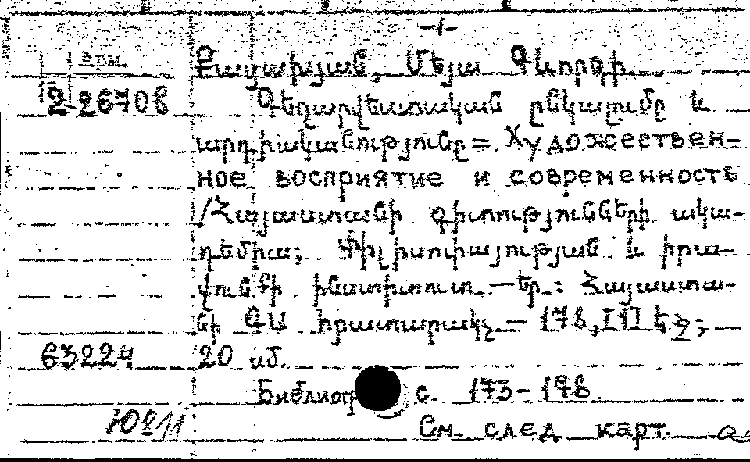 -1-
Арм.
Քալախյան, Սեդա Գևորգի.
2 26708 Գեղարվեստական ընկալումը և
արդիականությունը = Художествен-
ное восприятие и современность
/Հայաստանի գիտությունների ակա-
դեմիա; Փիլիսոփայության և իրա-
վունքի ինստիտուտ. — Եր.: Հայաստա-
նի ԳԱ հրատարակչ. — 178, [1] էջ;
63224 20 սմ.
с. 173-178
См. след карт.